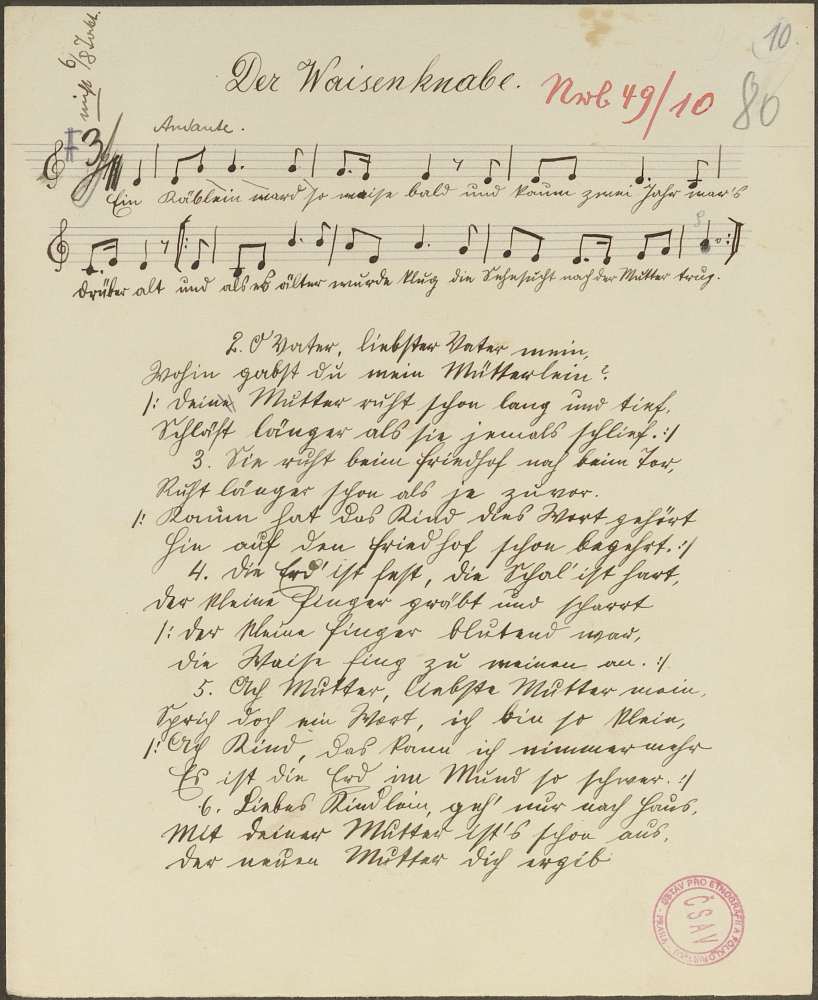 nicht 6/8 Takt.
10.
Der Waisenknabe.
Nrb 49/10
80
Andante.
3/4
Ein Käblein ward so waise bald und kaum zwei Jahr war's
drüber alt und als es älter wurde klug die Sehnsucht nach der Mutter trug.
2. O Vater, liebster Vater mein,
Wohin gabst du mein Mütterlein?
/: Deine Mutter ruht schon lang und tief,
Schläft länger als sie jemals schlief. :/
3. Sie ruht beim Friedhof nah beim Tor,
Ruht länger schon als je zuvor.
/: Kaum hat das Kind dies Wort gehört
Hin auf den Friedhof schon begehrt. :/
4. Die Erd' ist fest, die Schal' ist hart,
Der kleine Finger gräbt und scharrt
/: Der kleine Finger blutend war,
die Waise fing zu weinen an. :/
5. Ach Mutter, liebste Mutter mein,
Sprich doch ein Wort, ich bin so klein,
/: Ach Kind, das kann ich nimmermehr
Es ist die Erd im Mund so schwer. :/
6. Liebes Kindlein, geh' nur nach Haus,
Mit deiner Mutter ist's schon aus,
Der neuen Mutter dich ergib
ÚSTAV PRO ETNOGRAFII A FOLKLORISTIKU - PRAHA -
ČSAV